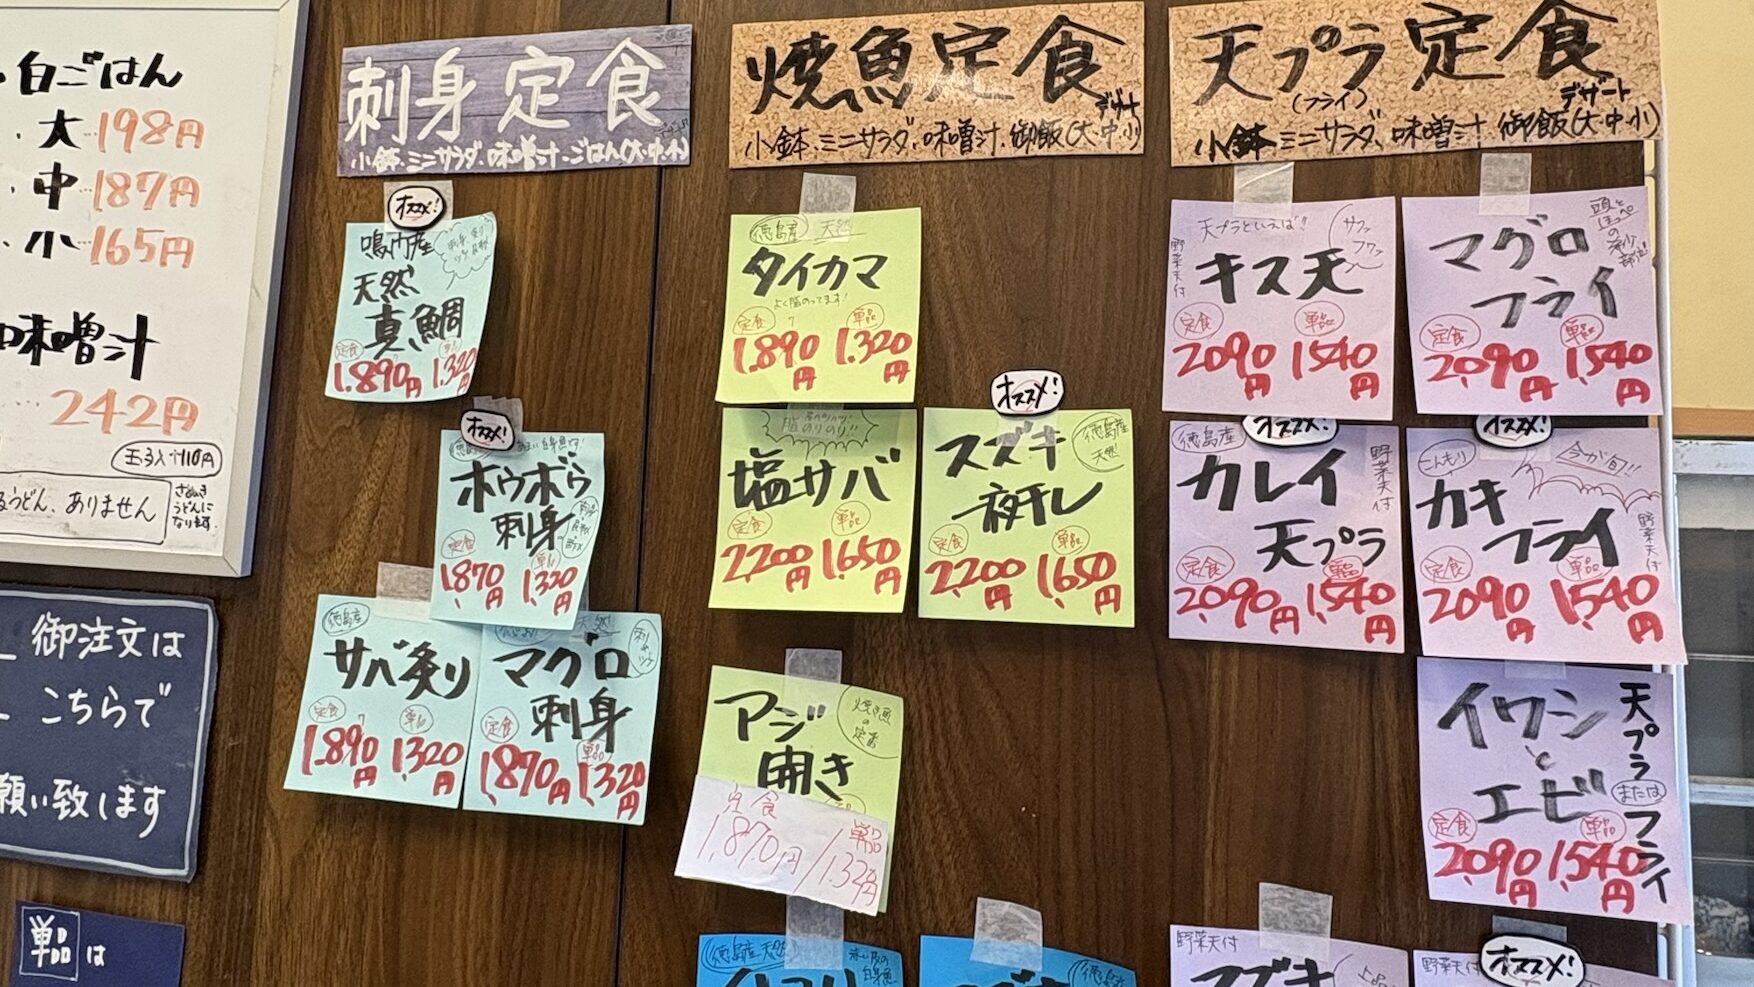 白ごはん
大 198円
中 187円
小 165円
味噌汁
242円
玉子入り110円
うどん、ありません
さぬき
うどんに
なります。
御注文は
こちらで
願い致します
単品は
刺身定食
デザート
小鉢、ミニサラダ、味噌汁、ごはん(大・中・小)
オススメ!
鳴門産
天然
真鯛
定食 単品
1.890円 1.320
オススメ!
あまい白身魚です!
ホウボウ
刺身
定食 単品
1.870円 1.320円
徳島産
サバ炙り
定食 単品
1.890円 1320円
天然
マグロ
刺身
定食 単品
1.870円 1.320円
焼魚定食
デザート
小鉢、ミニサラダ、味噌汁、御飯(大・中・小)
徳島産 天然
タイカマ
よく脂のってます!
定食 単品
1.890円 1.320円
脂のりのり!!
塩サバ
定食 単品
2.200円 1.650円
オススメ!
徳島産
天然
スズキ
一夜干し
定食 単品
2.200円 1.650円
焼き魚
の
定番
アジ
開き
定食 単品
1.870円/1.320円
徳島産 天然
徳島産
天プラ定食
(フライ)
デザート
小鉢、ミニサラダ、味噌汁、御飯(大・中・小)
天プラといえば!!
サクッ
フワッ
野菜天付
キス天
定食 単品
2090円 1540円
頭と
ほっぺ
の
希少
部位!
マグロ
フライ
定食 単品
2.090円 1.540円
オススメ!
徳島産
野菜天付
カレイ
天プラ
定食 単品
2.090円 1.540円
オススメ!
こんもり
今が旬!!
カキ
フライ
野菜天付
定食 単品
2090円 1.540円
イワシ
と
エビ
天プラ
または
フライ
定食 単品
2.090円 1.540円
野菜天付
スズキ
上品
オススメ!
野菜天付